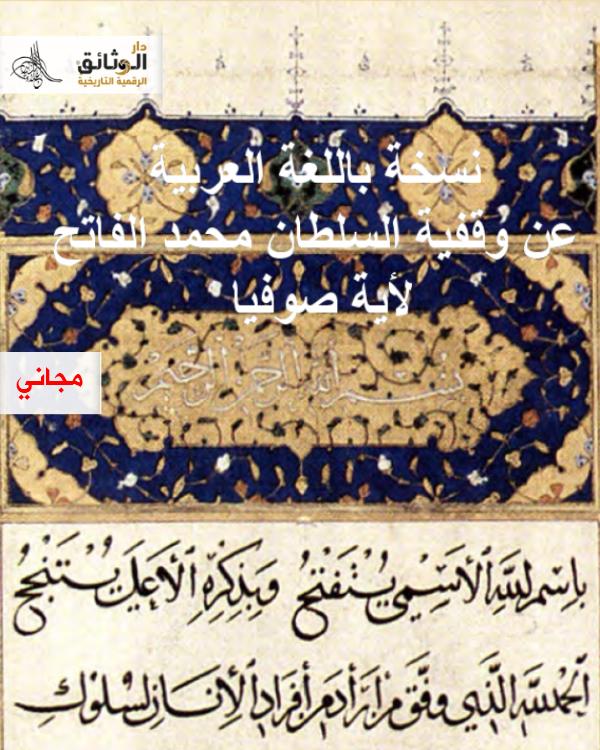 دار
الوثائق
الرقمية التاريخية
نسخة باللغة العربية
عن وقفية السلطان محمد الفاتح
لأية صوفيا
بسم الله الرحمن الرحيم
مجاني
باسم الله الأسمى يُستفتح وبذكره الأعلى يستنجح
الحمد لله الذي وفق من أراد من أفراد الإنسان لسلوك